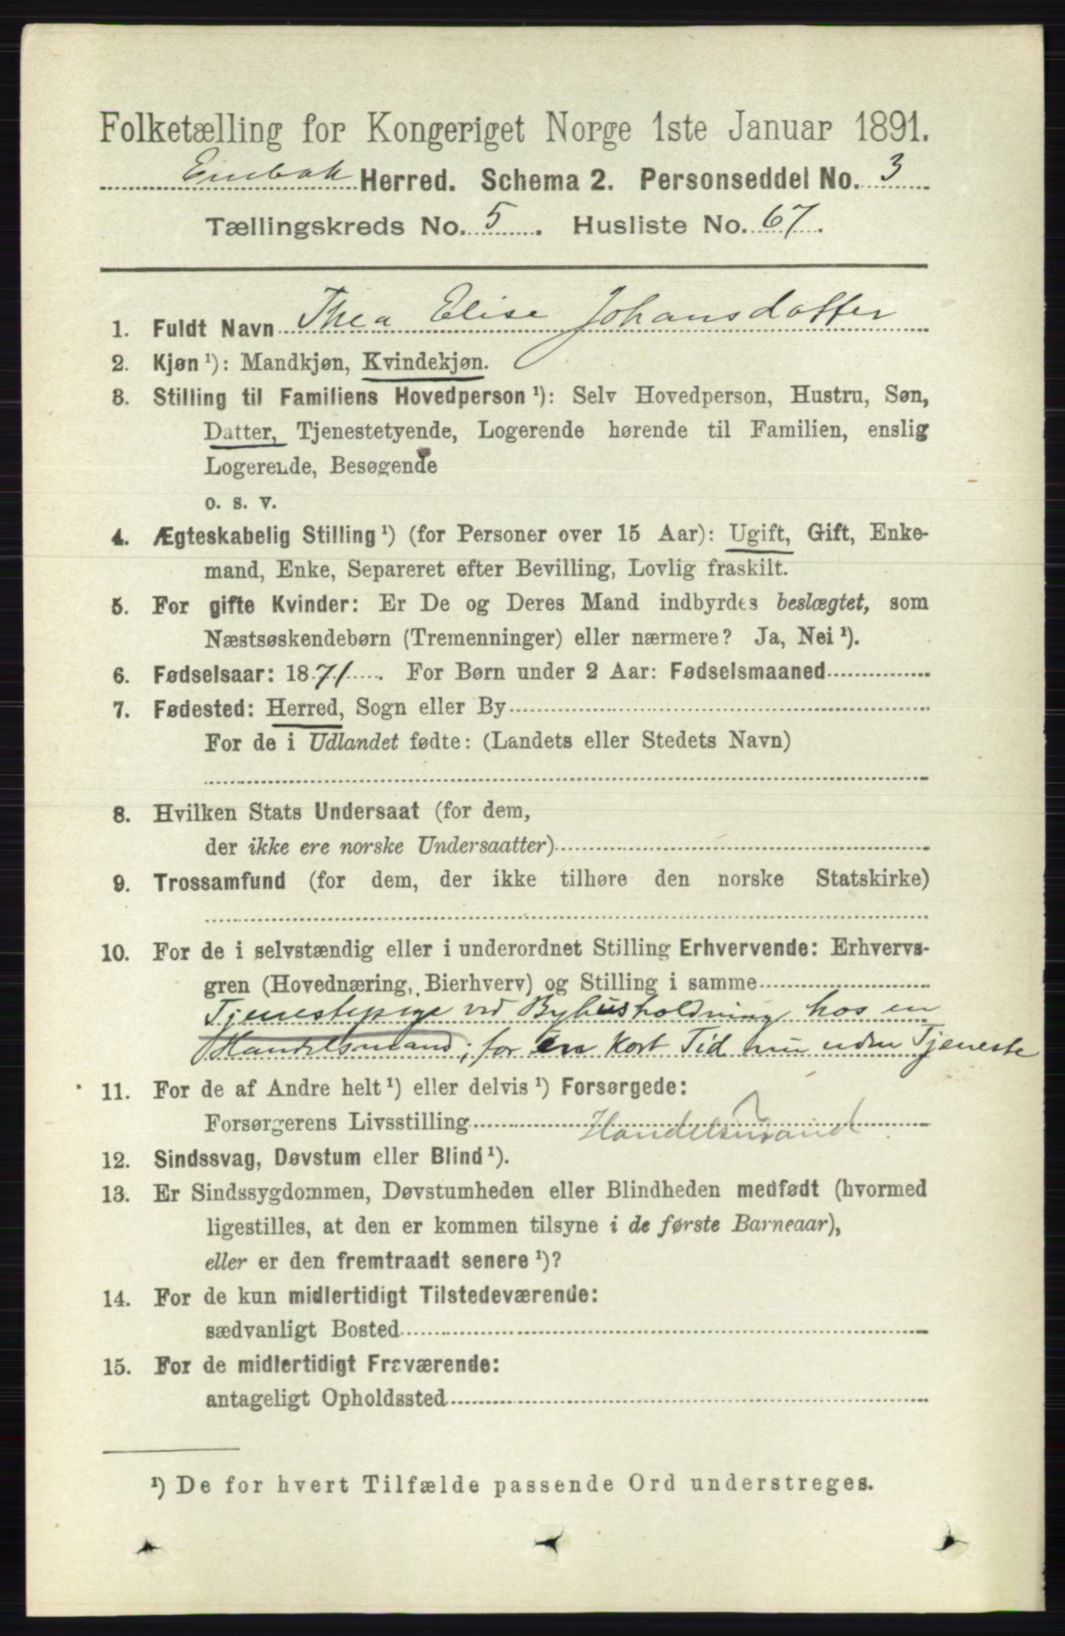 Folketælling for Kongeriget Norge 1ste Januar 1891.
Enebak Herred. Schema 2. Personseddel No. 3
Tællingskreds No. 5. Husliste No. 67.
1. Fuldt Navn Thea Elise Johansdatter
2. Kjøn ¹): Mandkjøn, Kvindekjøn.
3. Stilling til Familiens Hovedperson ¹): Selv Hovedperson, Hustru, Søn,
Datter, Tjenestetyende, Logerende hørende til Familien, enslig
Logerende, Besøgende
o. s. v.
4. Ægteskabelig Stilling ¹) (for Personer over 15 Aar): Ugift, Gift, Enke-
mand, Enke, Separeret efter Bevilling, Lovlig fraskilt.
5. For gifte Kvinder: Er De og Deres Mand indbyrdes beslægtet, som
Næstsøskendebørn (Tremenninger) eller nærmere? Ja, Nei ¹).
6. Fødselsaar: 1871. For Børn under 2 Aar: Fødselsmaaned
7. Fødested: Herred, Sogn eller By
For de i Udlandet fødte: (Landets eller Stedets Navn)
8. Hvilken Stats Undersaat (for dem,
der ikke ere norske Undersaatter)
9. Trossamfund (for dem, der ikke tilhøre den norske Statskirke)
10. For de i selvstændig eller i underordnet Stilling Erhvervende: Erhvervs-
gren (Hovednæring, Bierhverv) og Stilling i samme
Tjenestepige ved Byhusholdning hos en
Handelsmand; for en kort Tid nu uden Tjeneste
11. For de af Andre helt ¹) eller delvis ¹) Forsørgede:
Forsørgerens Livsstilling Handelsmand
12. Sindssvag, Døvstum eller Blind ¹).
13. Er Sindssygdommen, Døvstumheden eller Blindheden medfødt (hvormed
ligestilles, at den er kommen tilsyne i de første Barneaar),
eller er den fremtraadt senere ¹)?
14. For de kun midlertidigt Tilstedeværende:
sædvanligt Bosted
15. For de midlertidigt Fraværende:
antageligt Opholdssted
¹) De for hvert Tilfælde passende Ord understreges.